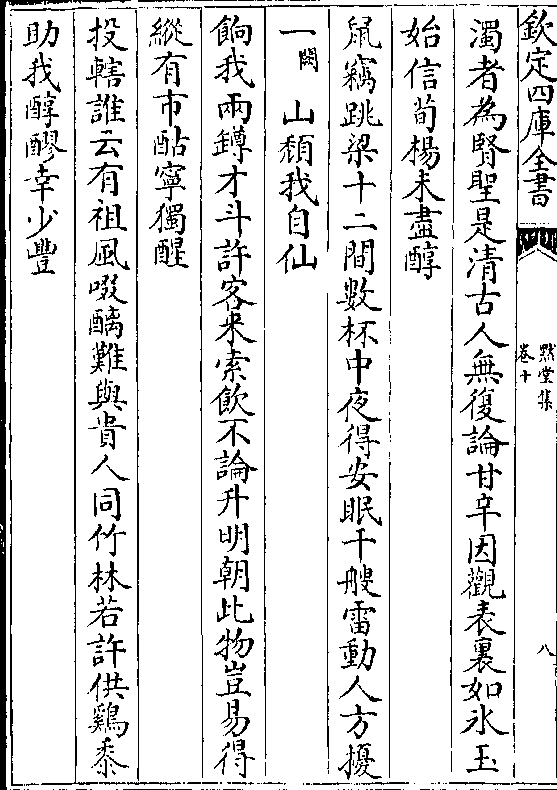 欽定四庫全書
黙堂集
卷十
八
濁者為賢聖是清古人無復論甘辛因觀表裏如冰玉
始信荀楊未盡醇
鼠竊跳梁十二間數杯中夜得安眠千艘雷動人方擾
一闋山頽我自仙
餉我兩罇才斗許客来索飲不論升明朝此物豈易得
縱有市酤寧獨醒
投轄誰云有祖風啜醨難與貴人同竹林若許供鷄黍
助我醇醪幸少豐